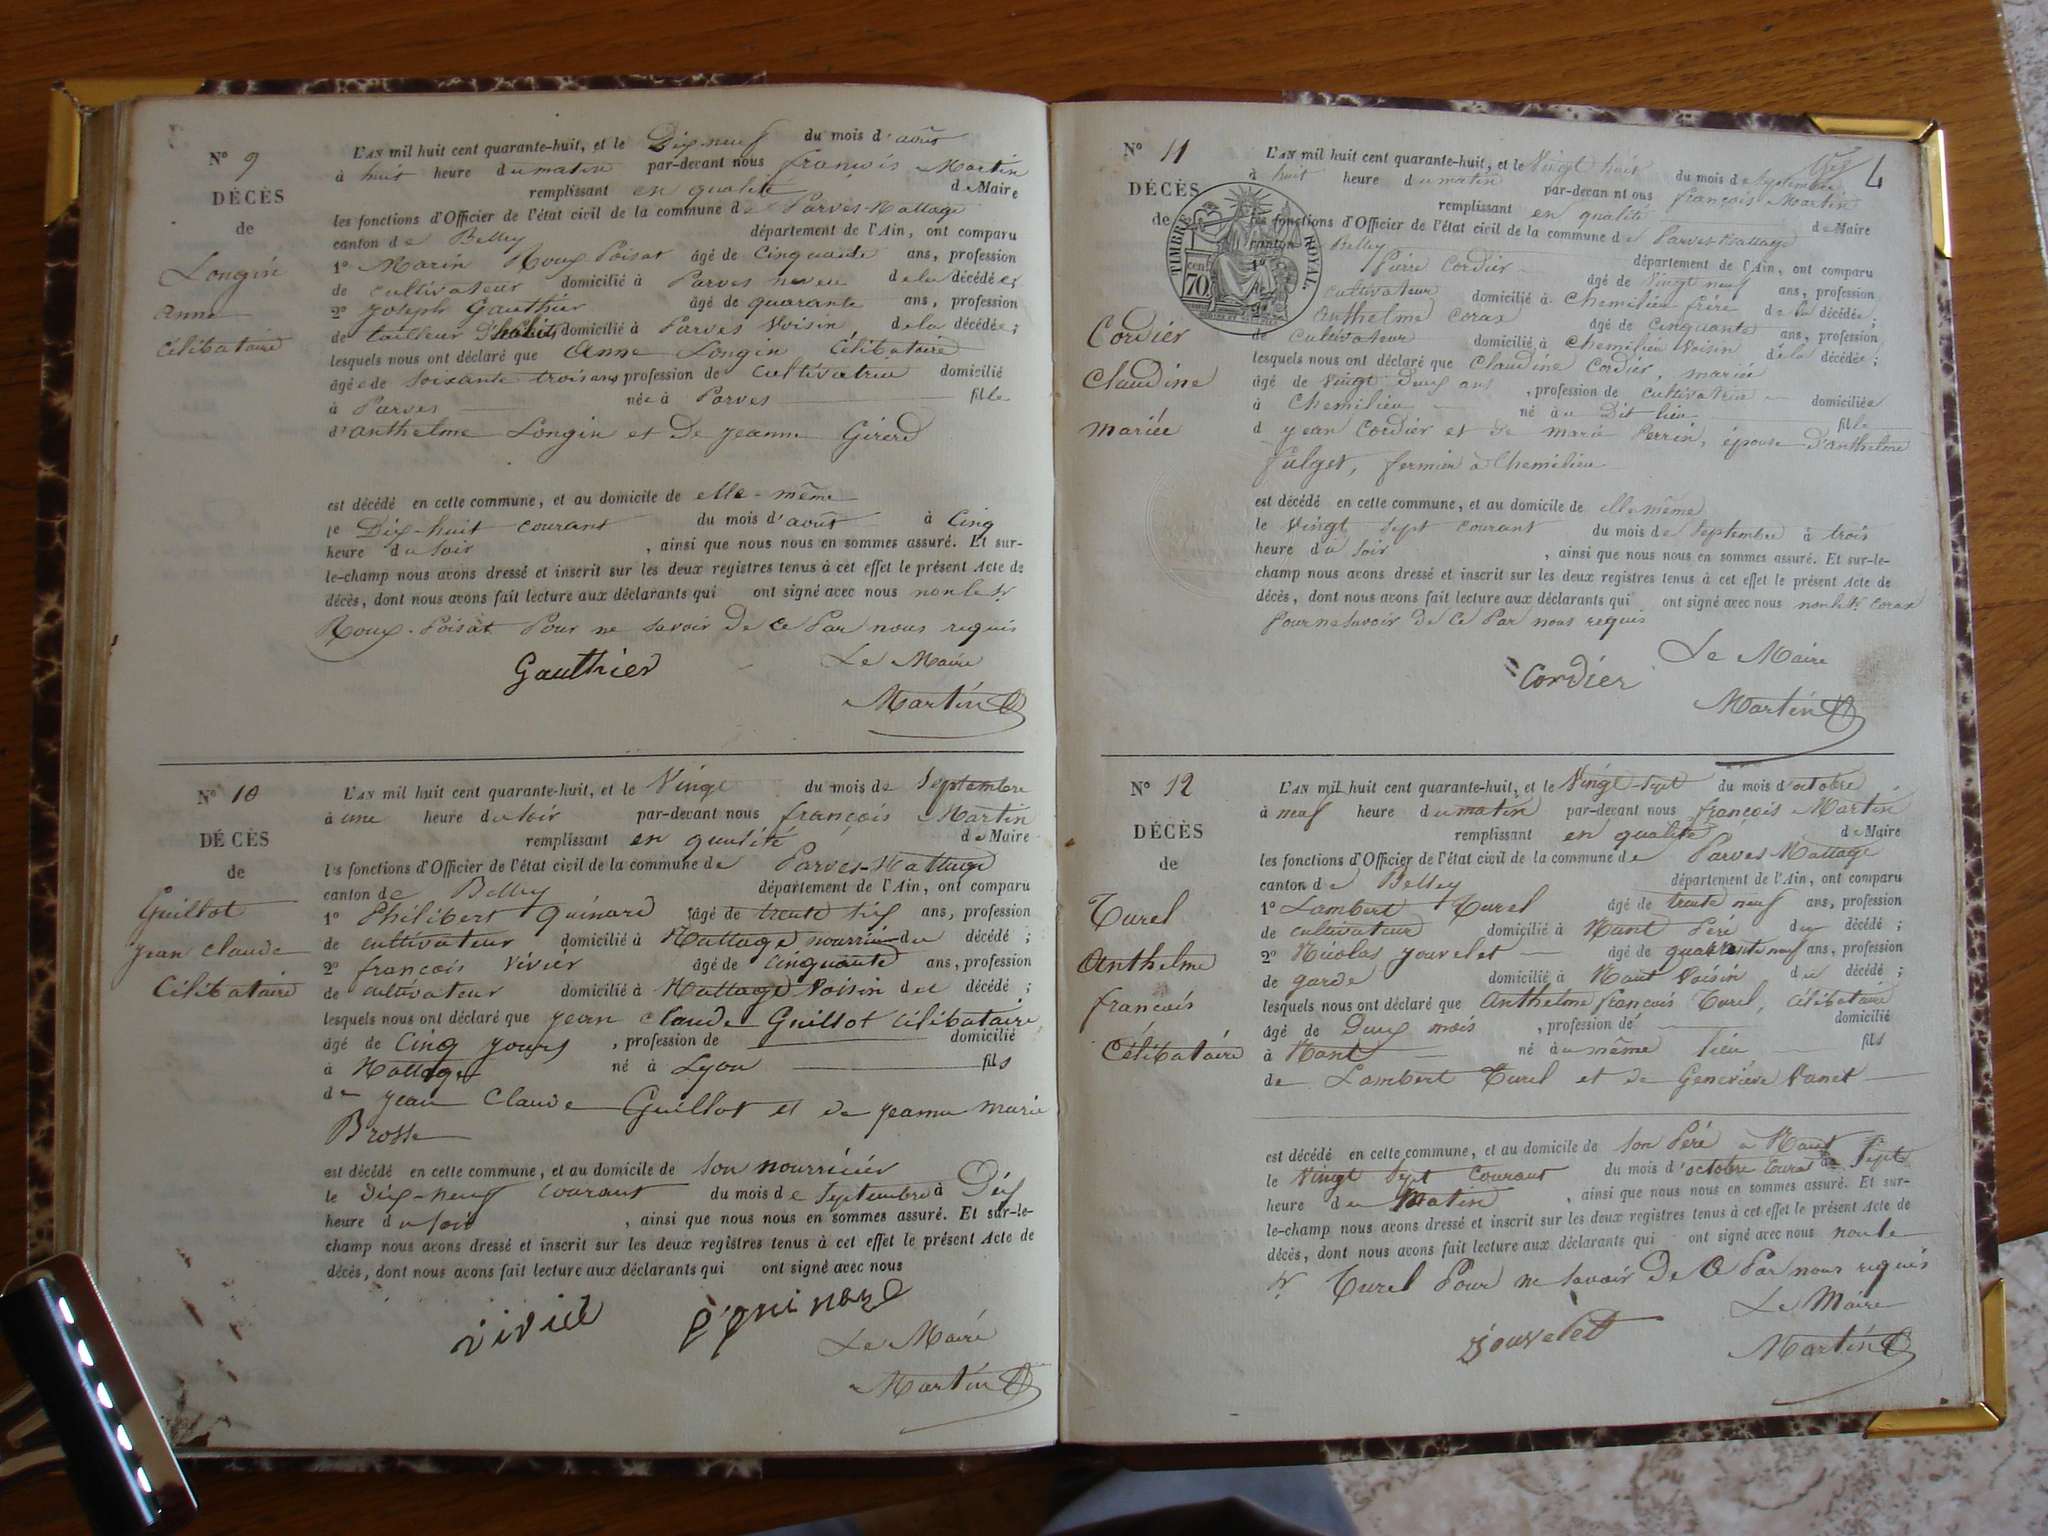 N° 9
DÉCÈS
de
Longin
anne
célibataire
L'AN mil huit cent quarante-huit, et le Dix neuf du mois d'août
à huit heure du matin par-devant nous françois Martin
remplissant en qualité de Maire
les fonctions d'Officier de l'état civil de la commune de Parves-Nattage
canton de Belley département de l'Ain, ont comparu
1° Marin Roux Poisat âgé de cinquante ans, profession
de cultivateur domicilié à Parves neveu de la décédée;
2° joseph Gauthier âgé de quarante ans, profession
de tailleur D'habits domicilié à Parves Voisin de la décédée;
lesquels nous ont déclaré que Anne Longin Célibataire
âgée de soixante trois ans profession de cultivatrice domicilié
à Parves née à Parves fille
d'anthelme Longin et De jeanne Girerd
est décédé en cette commune, et au domicile de elle-même
le Dix-huit courant du mois d'août à Cinq
heure du soir , ainsi que nous nous en sommes assuré. Et sur-
le-champ nous avons dressé et inscrit sur les deux registres tenus à cet effet le présent Acte de
décès, dont nous avons fait lecture aux déclarants qui ont signé avec nous non le Sr
Roux-Poisat Pour ne savoir De ce Par nous requis
Gauthier
Le Maire
Martin
N° 10
DÉCÈS
de
Guillot
jean claude
Célibataire
L'AN mil huit cent quarante-huit, et le Vingt du mois de Septembre
à une heure du soir par-devant nous françois Martin
remplissant en qualité de Maire
les fonctions d'Officier de l'état civil de la commune de Parves-Nattage
canton de Belley département de l'Ain, ont comparu
1° Philibert Quinard âgé de trente six ans, profession
de cultivateur domicilié à Nattage nourricier du décédé;
2° françois Vivier âgé de cinquante ans, profession
de cultivateur domicilié à Nattage Voisin du décédé;
lesquels nous ont déclaré que jean claude Guillot célibataire,
âgé de Cinq jours , profession de domicilié
à Nattage né à Lyon fils
de jean Claude Guillot et de jeanne marie
Brosse
est décédé en cette commune, et au domicile de son nourricier
le Dix-neuf courant du mois de Septembre à Dix
heure du soir , ainsi que nous nous en sommes assuré. Et sur-le-
champ nous avons dressé et inscrit sur les deux registres tenus à cet effet le présent Acte de
décès, dont nous avons fait lecture aux déclarants qui ont signé avec nous
Vivier
Le Maire
Martin
4
N° 11
DÉCÈS
de
Cordier
Claudine
mariée
TIMBRE ROYAL.
70 cent
L'AN mil huit cent quarante-huit, et le Vingt huit du mois de Septembre
à huit heure du matin par-devant nous françois Martin
remplissant en qualité de Maire
les fonctions d'Officier de l'état civil de la commune de Parves-Nattage
canton Belley département de l'Ain, ont comparu
1° Pierre Cordier âgé de Vingt neuf ans, profession
cultivateur domicilié à Chemilieu frère de la décédée;
Anthelme Corax âgé de Cinquante ans, profession
de cultivateur domicilié à Chemilieu Voisin de la décédée;
lesquels nous ont déclaré que Claudine Cordier, mariée
âgé de Vingt Deux ans , profession de cultivatrice domiciliée
à Chemilieu né àu Dit lieu fille
d jean Cordier et de marie Perrin, épouse D'anthelme
fulget, fermier à Chemilieu
est décédé en cette commune, et au domicile de elle même
le Vingt Sept courant du mois de Septembre à trois
heure du soir , ainsi que nous nous en sommes assuré. Et sur-le-
champ nous avons dressé et inscrit sur les deux registres tenus à cet effet le présent Acte de
décès, dont nous avons fait lecture aux déclarants qui ont signé avec nous non le Sr Corax
Pour ne savoir De ce Par nous requis
Cordier
Le Maire
Martin
N° 12
DÉCÈS
de
Turel
Anthelme
françois
Célibataire
L'AN mil huit cent quarante-huit, et le Vingt-Sept du mois d'octobre
à neuf heure du matin par-devant nous françois Martin
remplissant en qualité de Maire
les fonctions d'Officier de l'état civil de la commune de Parves-Nattage
canton de Belley département de l'Ain, ont comparu
1° Lambert Turel âgé de trente neuf ans, profession
de cultivateur domicilié à Nant Père du décédé;
2° Nicolas jouvelet âgé de quarante neuf ans, profession
de garde domicilié à Nant Voisin du décédé;
lesquels nous ont déclaré que Anthelme françois Turel, célibataire
âgé de Deux mois , profession de domicilié
à Nant né àu même lieu fils
de Lambert Turel et de Geneviève Vanet
est décédé en cette commune, et au domicile de son Père à Nant
le Vingt Sept courant du mois d'octobre Sept
heure du Matin , ainsi que nous nous en sommes assuré. Et sur-
le-champ nous avons dressé et inscrit sur les deux registres tenus à cet effet le présent Acte de
décès, dont nous avons fait lecture aux déclarants qui ont signé avec nous non le
Sr Turel Pour ne savoir De ce Par nous requis
Jouvelet
Le Maire
Martin